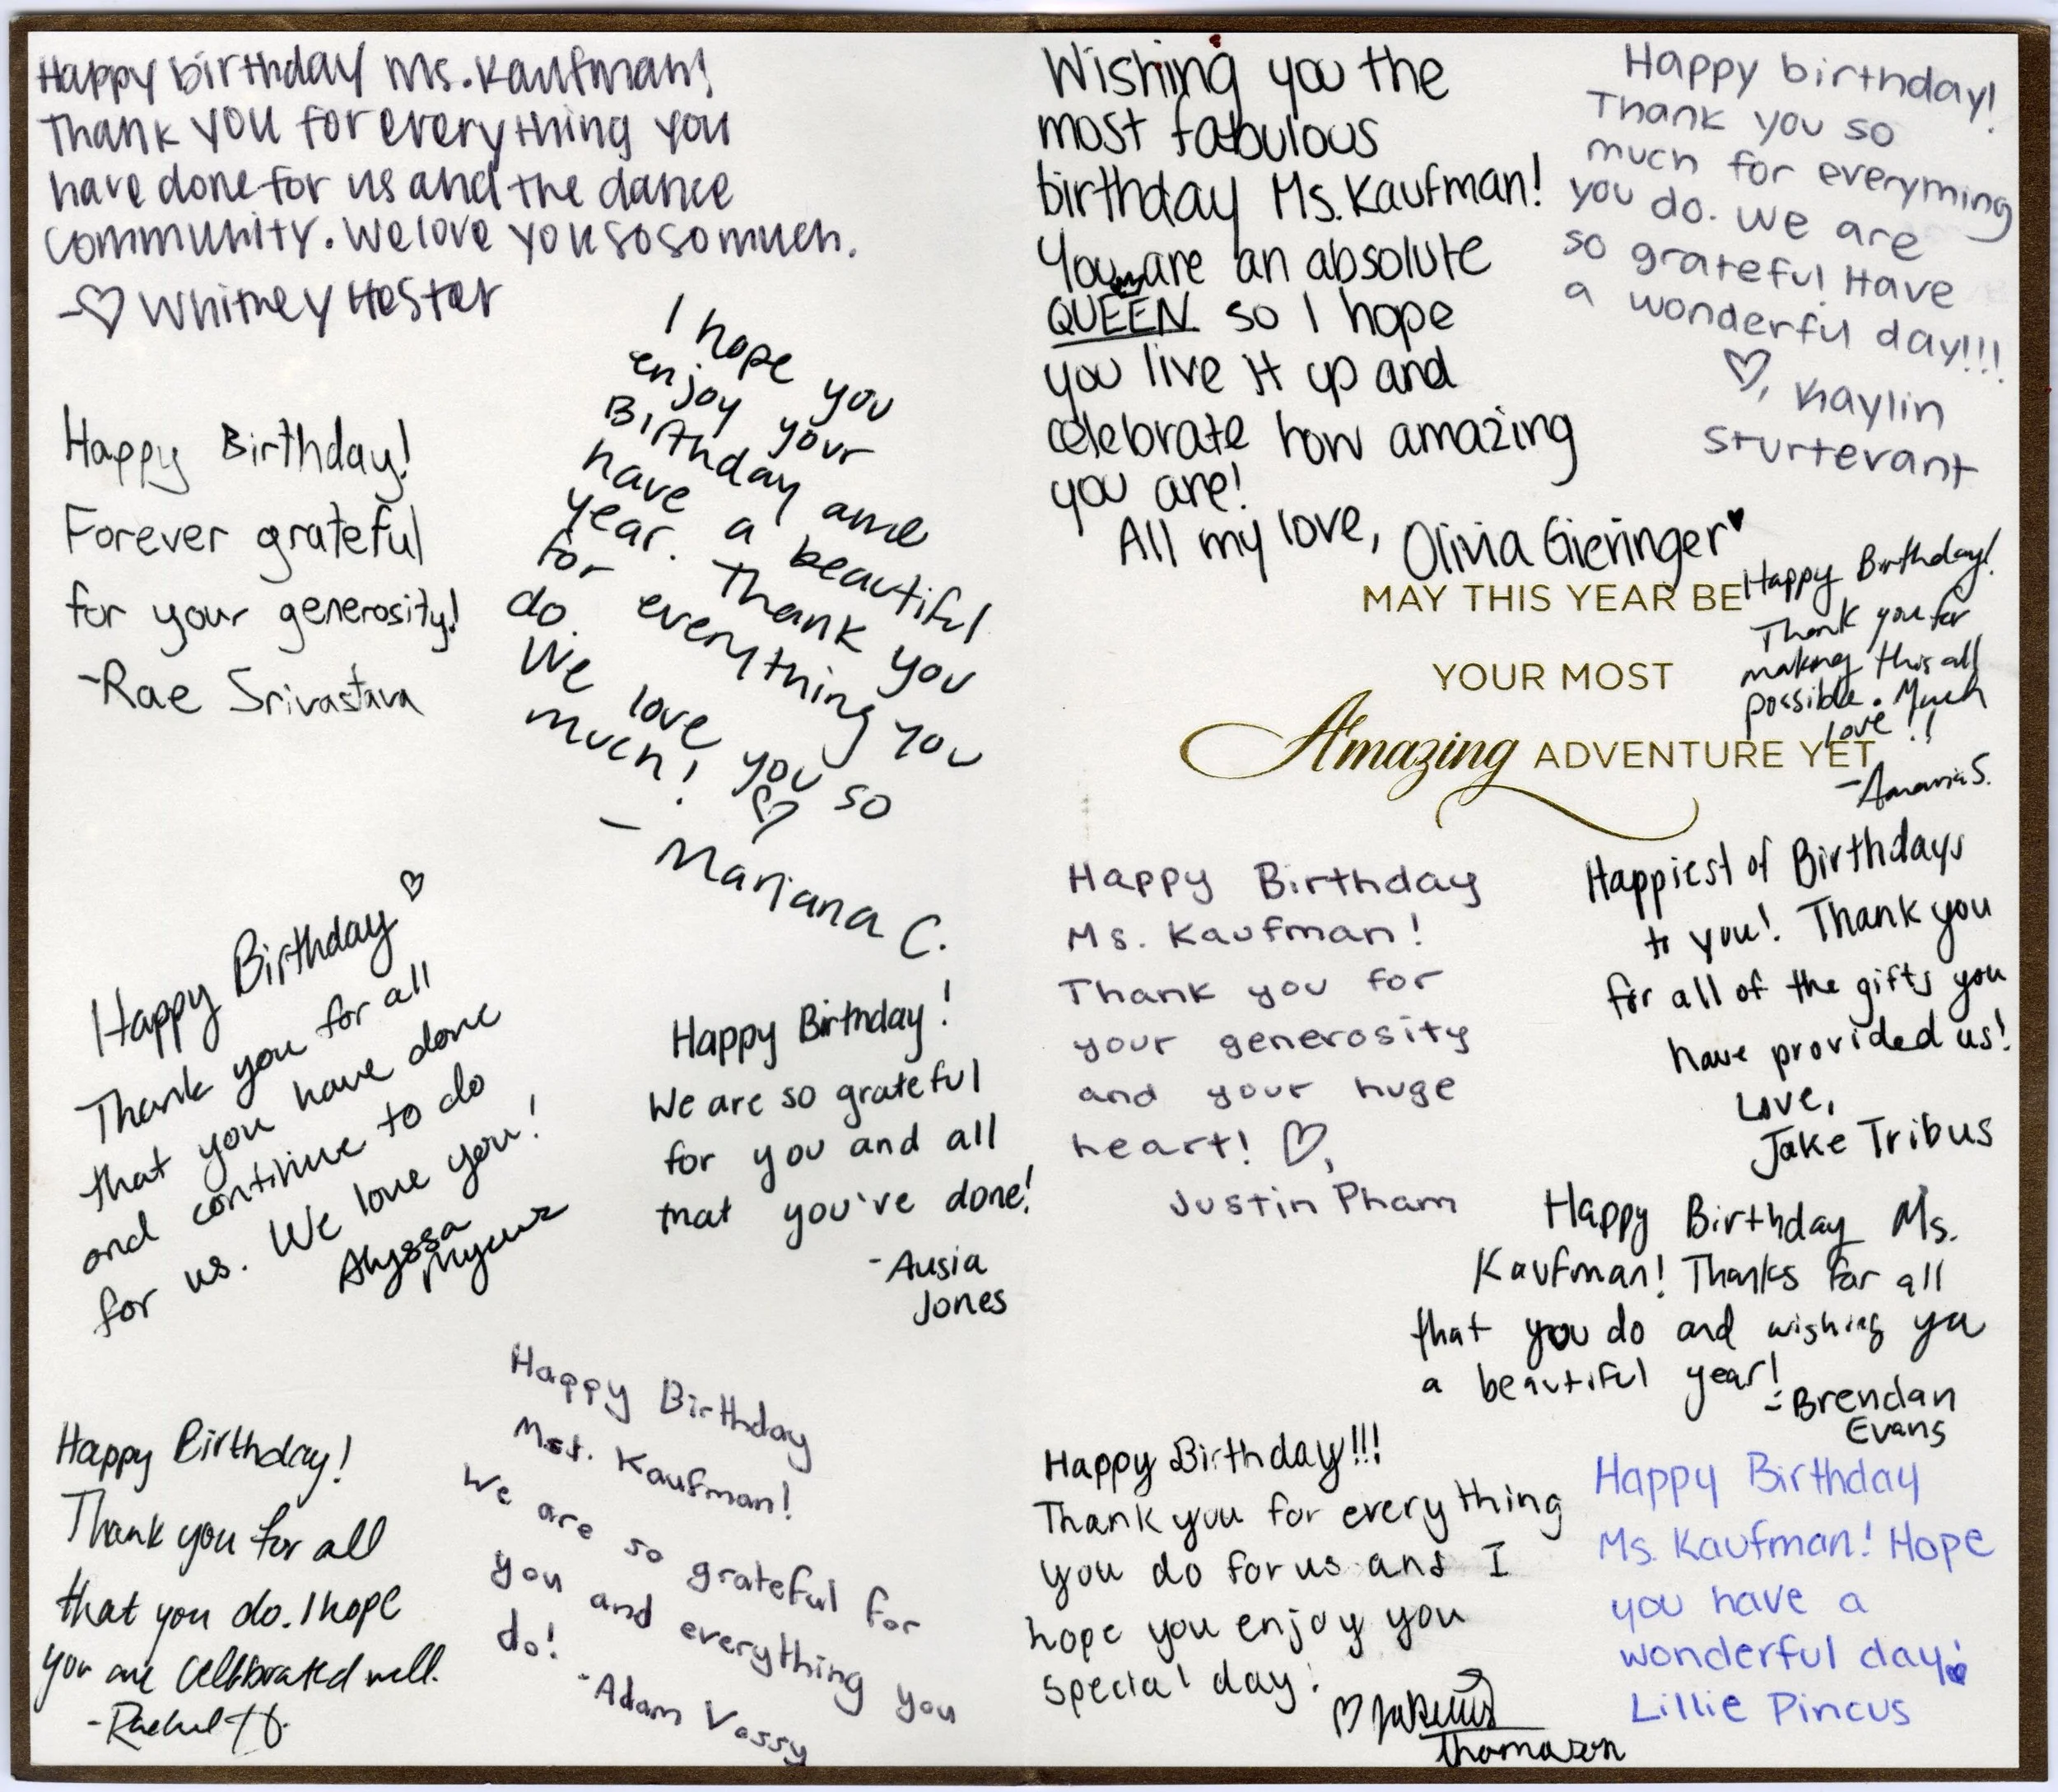 Happy birthday Ms. Kaufman!
Thank you for everything you
have done for us and the dance
community. We love you so so much.
-♡ Whitney Hester
I hope you
enjoy your
Birthday and
have a beautiful
year. Thank you
for everything you
do.
We love you so
much! ♡
- Mariana C.
Happy Birthday!
Forever grateful
for your generosity!
-Rae Srivastava
Happy Birthday ♡
Thank you for all
that you have done
and continue to do
for us. We love you!
Alyssa
Happy Birthday!
We are so grateful
for you and all
that you've done!
-Ausia
Jones
Happy Birthday!
Thank you for all
that you do. I hope
you are celebrated well.
-Rachel H.
Happy Birthday
Ms. Kaufman!
We are so grateful for
you and everything you
do!
-Adam Vossy
Wishing you the
most fabulous
birthday Ms. Kaufman!
You are an absolute
QUEEN so I hope
you live it up and
celebrate how amazing
you are!
All my love, Olivia Gieringer♥
Happy birthday!
Thank you so
much for everything
you do. We are
so grateful Have
a wonderful day!!!
♡, Kaylin
Sturtevant
MAY THIS YEAR BE
YOUR MOST
Amazing ADVENTURE YET
Happy Birthday!
Thank you for
making this all
possible. Much
love!!
-Amaria S.
Happy Birthday
Ms. Kaufman!
Thank you for
your generosity
and your huge
heart! ♡,
Justin Pham
Happiest of Birthdays
to you! Thank you
for all of the gifts you
have provided us!
Love,
Jake Tribus
Happy Birthday Ms.
Kaufman! Thanks for all
that you do and wishing ya
a beautiful year!
-Brendan
Evans
Happy Birthday!!!
Thank you for everything
you do for us and I
hope you enjoy you
special day!
♡
Thomason
Happy Birthday
Ms. Kaufman! Hope
you have a
wonderful day!
Lillie Pincus